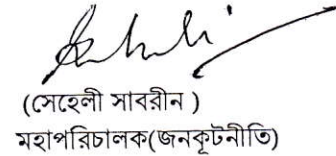 (সেহেলী সাবরীন )
মহাপরিচালক(জনকূটনীতি)